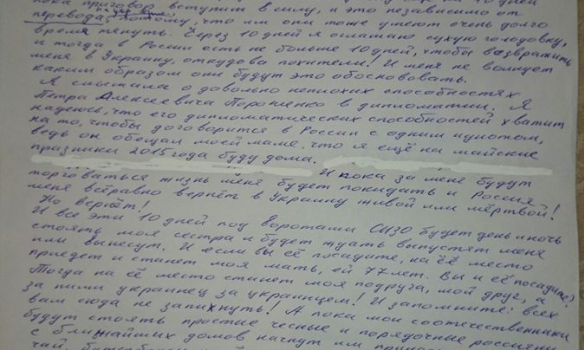 пока приговор вступит в силу, и это независимо от
перевода. Потому, что им они тоже умеют очень долго
время тянуть. Через 10 дней я оглашаю сухую голодовку,
и тогда в России есть не больше 10 дней, чтобы возвратить
меня в Украину, откудова похитили! И меня не волнует
каким образом они будут это обоснововать.
Я слыхала о довольно неплохих способностях
Петра Алексеевича Порошенко в дипломатии. Я
надеюсь, что его дипломатических способностей хватит
на то, чтобы договорится в России с одним идиотом,
ведь он обещал моей маме, что я ещё на майские
праздники 2015 года буду дома.
И пока за меня будут
торговаться жизнь меня будет покидать и Россия
меня всёравно вернёт в Украину живой или мёртвой!
Но вернёт!
И все эти 10 дней под воротами СИЗО будет день и ночь
стоять моя сестра и будет ждать выпустят меня
или вынесут. И если вы её посадите, на её место
приедет и станет моя мать, ей 77 лет. Вы и её посадите?
Тогда на её место станет моя подруга, мой друг, а
за ними украинец за украинцем! И запомните: всех
вам сюда не запихнуть! А пока мои соотечественники
будут стоять простые чесные и порядочные россияне
с ближайших домов начнут им
чай,